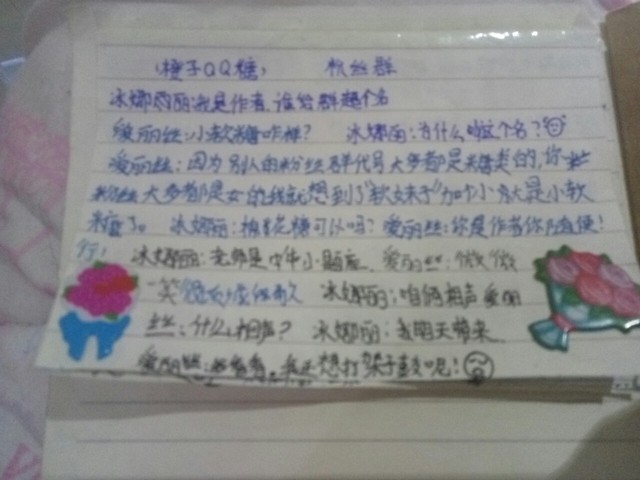 (橙子QQ糖) 粉丝群
冰娜雨丽:我是作者,谁给群起个名
爱丽丝:小软糖咋样? 冰娜丽:为什么叫这个名?
爱丽丝:因为别人的粉丝群代号大多都是糖类的,你
粉丝大多都是女的我就想到了"软妹子"加个小就是小软
糖了。 冰娜丽:棉花糖可以吗? 爱丽丝:你是作者你随便!
行! 冰娜丽:老师是中年小 爱丽丝:微微
一笑 冰娜丽:咱俩相声 爱丽
丝:什么相声? 冰娜丽:我明天带来
爱丽丝:好 我还想打架子鼓呢!